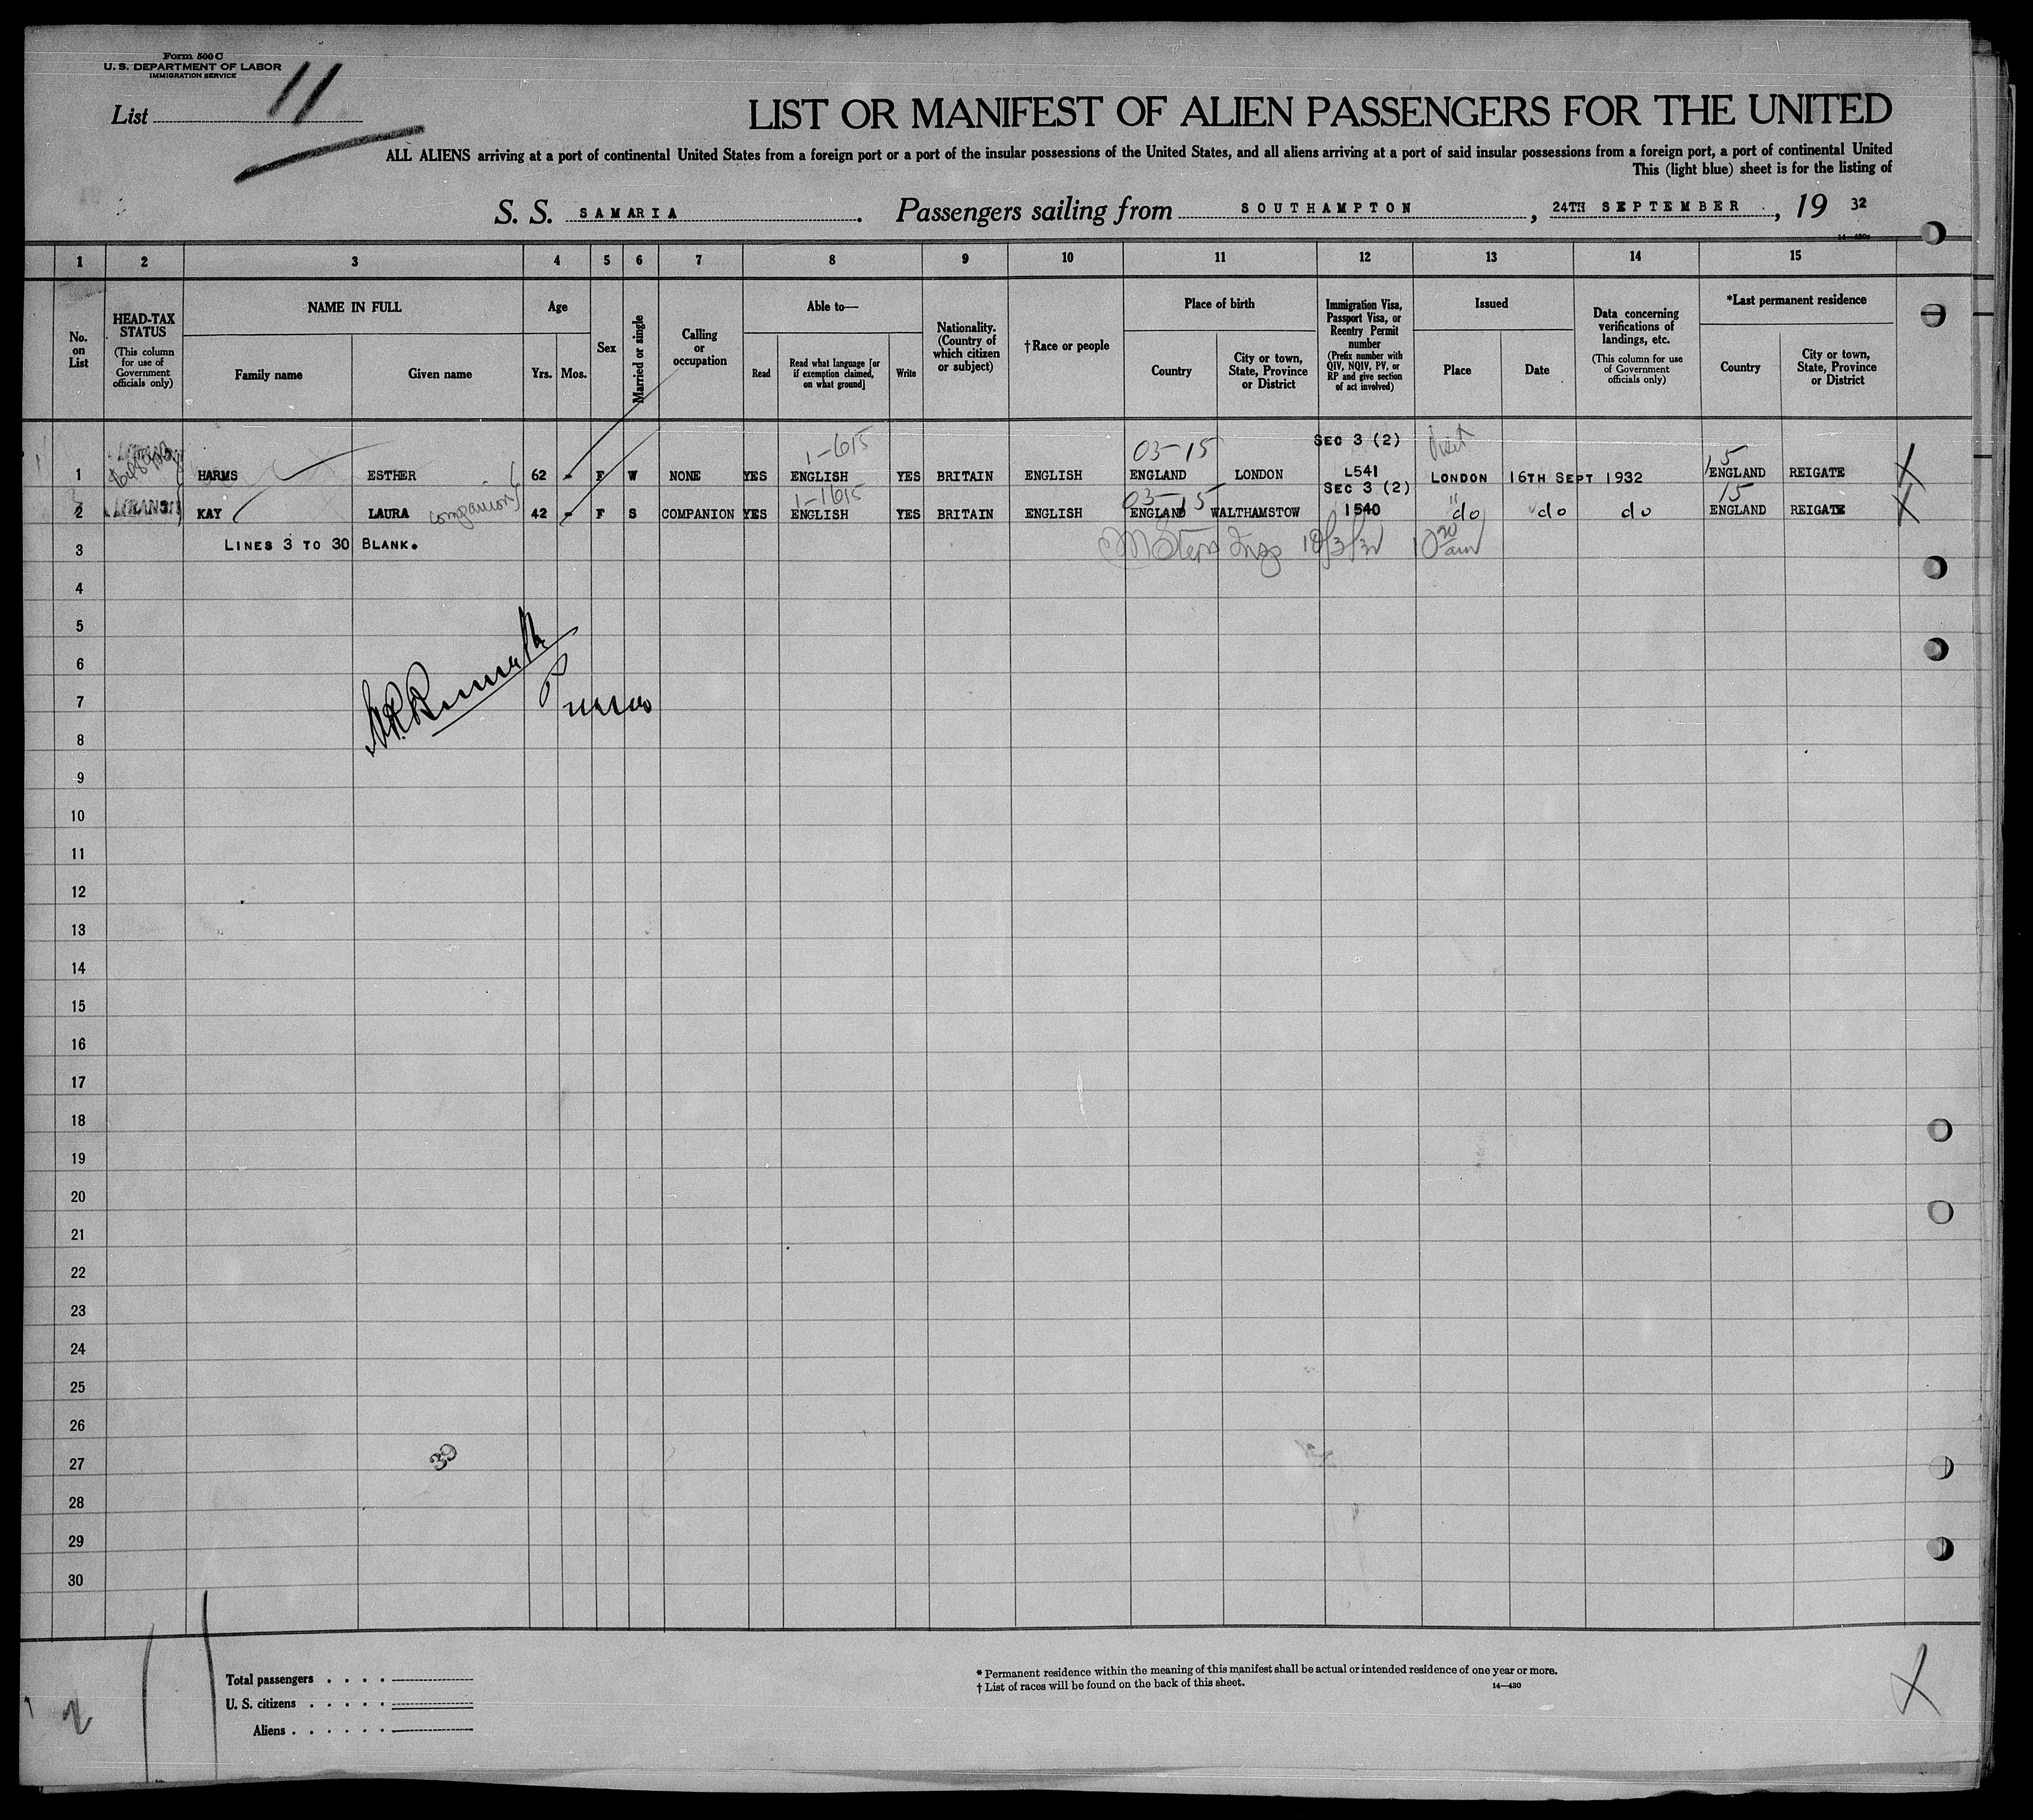 Form 500 C
U. S. DEPARTMENT OF LABOR
IMMIGRATION SERVICE
List 11
LIST OR MANIFEST OF ALIEN PASSENGERS FOR THE UNITED
ALL ALIENS arriving at a port of continental United States from a foreign port or a port of the insular possessions of the United States, and all aliens arriving at a port of said insular possessions from a foreign port, a port of continental United
This (light blue) sheet is for the listing of
S. S. SAMARIA. Passengers sailing from SOUTHAMPTON, 24TH SEPTEMBER, 19 32
1 2 3 4 5 6 7 8 9 10 11 12 13 14 15
No. on List
HEAD-TAX STATUS (This column for use of Government officials only)
NAME IN FULL
Family name
Given name
Age
Yrs. Mos.
Sex
Married or single
Calling or occupation
Able to—
Read
Read what language [or if exemption claimed, on what ground]
Write
Nationality. (Country of which citizen or subject)
†Race or people
Place of birth
Country
City or town, State, Province or District
Immigration Visa, Passport Visa, or Reentry Permit number (Prefix number with QIV, NQIV, PV, or RP and give section of act involved)
Issued
Place
Date
Data concerning verifications of landings, etc. (This column for use of Government officials only)
*Last permanent residence
Country
City or town, State, Province or District
1-615 03-15 SEC 3 (2) 15
1 HARMS ESTHER 62 - F W NONE YES ENGLISH YES BRITAIN ENGLISH ENGLAND LONDON L541 LONDON 16TH SEPT 1932 ENGLAND REIGATE
1-1615 03-15 SEC 3 (2) " 15
2 KAY LAURA companion 42 - F S COMPANION YES ENGLISH YES BRITAIN ENGLISH ENGLAND WALTHAMSTOW 1540 do do do ENGLAND REIGATE
3 LINES 3 TO 30 BLANK.
4
5
6
7
8
9
10
11
12
13
14
15
16
17
18
19
20
21
22
23
24
25
26
27 39
28
29
30
Total passengers . . . .
U. S. citizens . . . . .
Aliens . . . . . .
* Permanent residence within the meaning of this manifest shall be actual or intended residence of one year or more.
† List of races will be found on the back of this sheet.
14—430
2